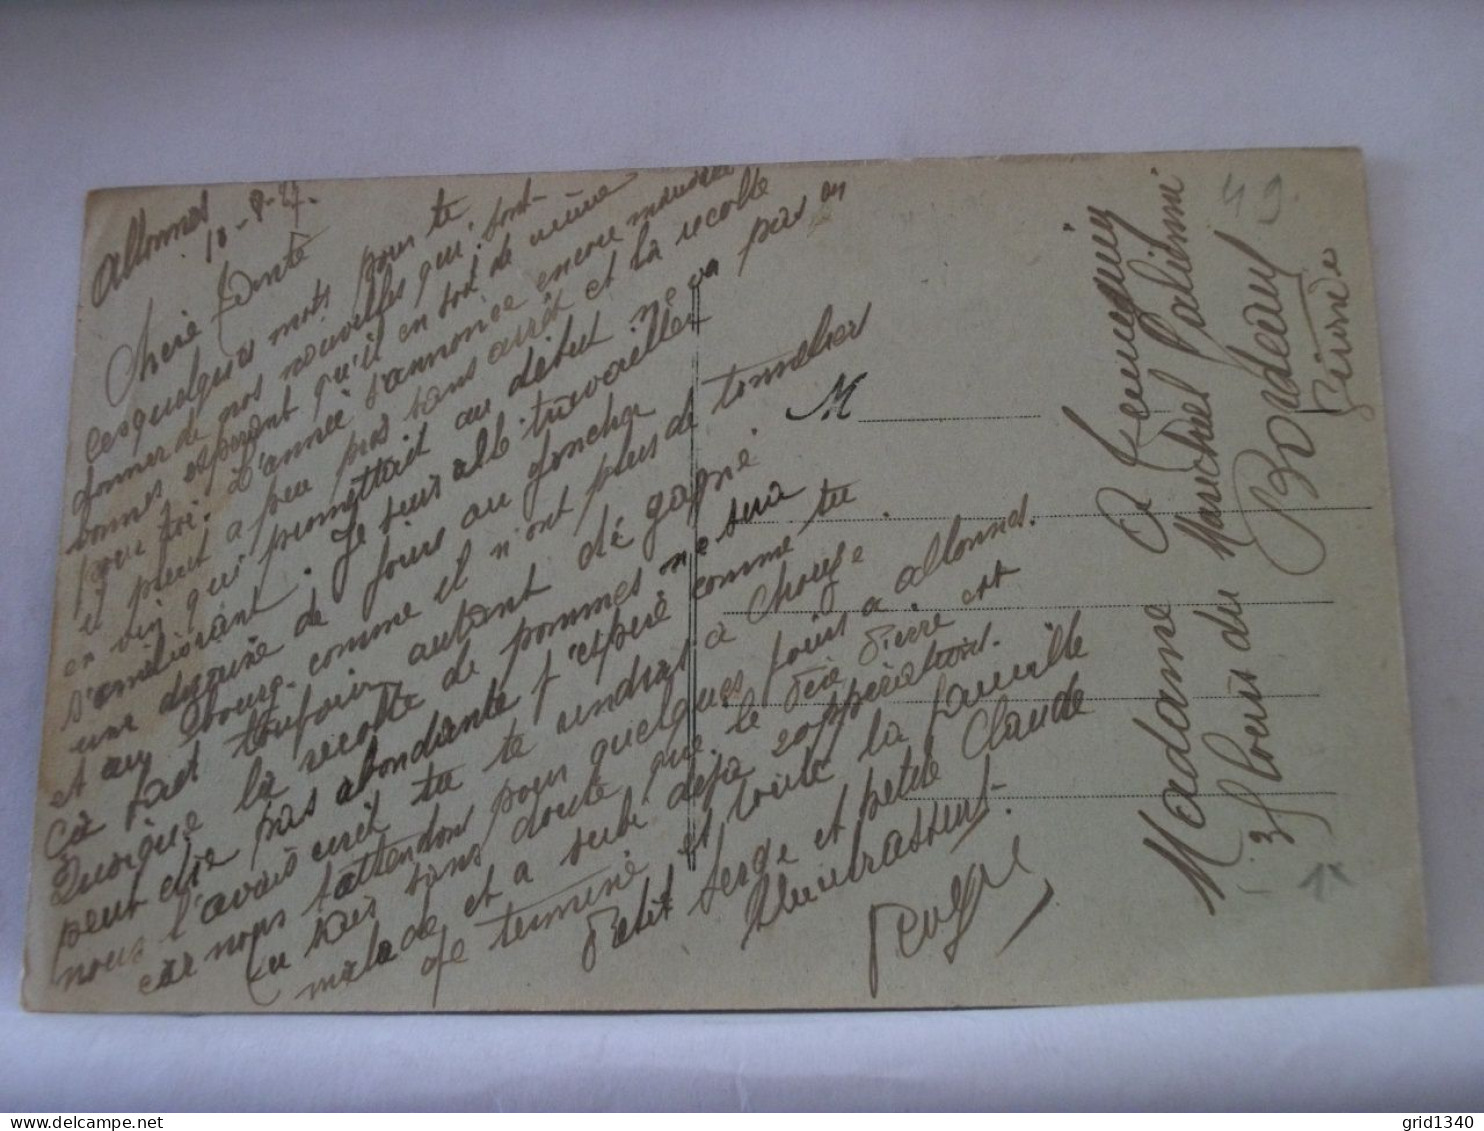 Allonnes
18-8-27.
Chère Tante
Ces quelques mots pour te
donner de nos nouvelles qui sont
bonnes esperant qu'il en soit de même
pour toi. L'année s'annonce encore mauvaise
il pleut a peu pres sans arrêt et la recolte
en vin qui promettait au début ne va pas en
s'améliorant. Je suis allé travailler
une dizaine de jours au
et au bourg comme il n'ont plus de tonnelier
ça fait toujour autant de gagné
Quoique la recolte de pommes ne sera
peut etre pas abondante j'espère comme tu
nous l'avais ecrit tu te viendras a
car nous t'attendons pour quelques jours a allonnes.
Tu sais sans doute que le Père Pierre est
malade et a subi deja 2 opperations.
Je termine et toute la famille
Petit Serge et petite Claude
t'embrassent.
Roger
M
Madame A
3 Cours du Marechal Galiéni
Bordeaux
Gironde
49.
1x
grid1340